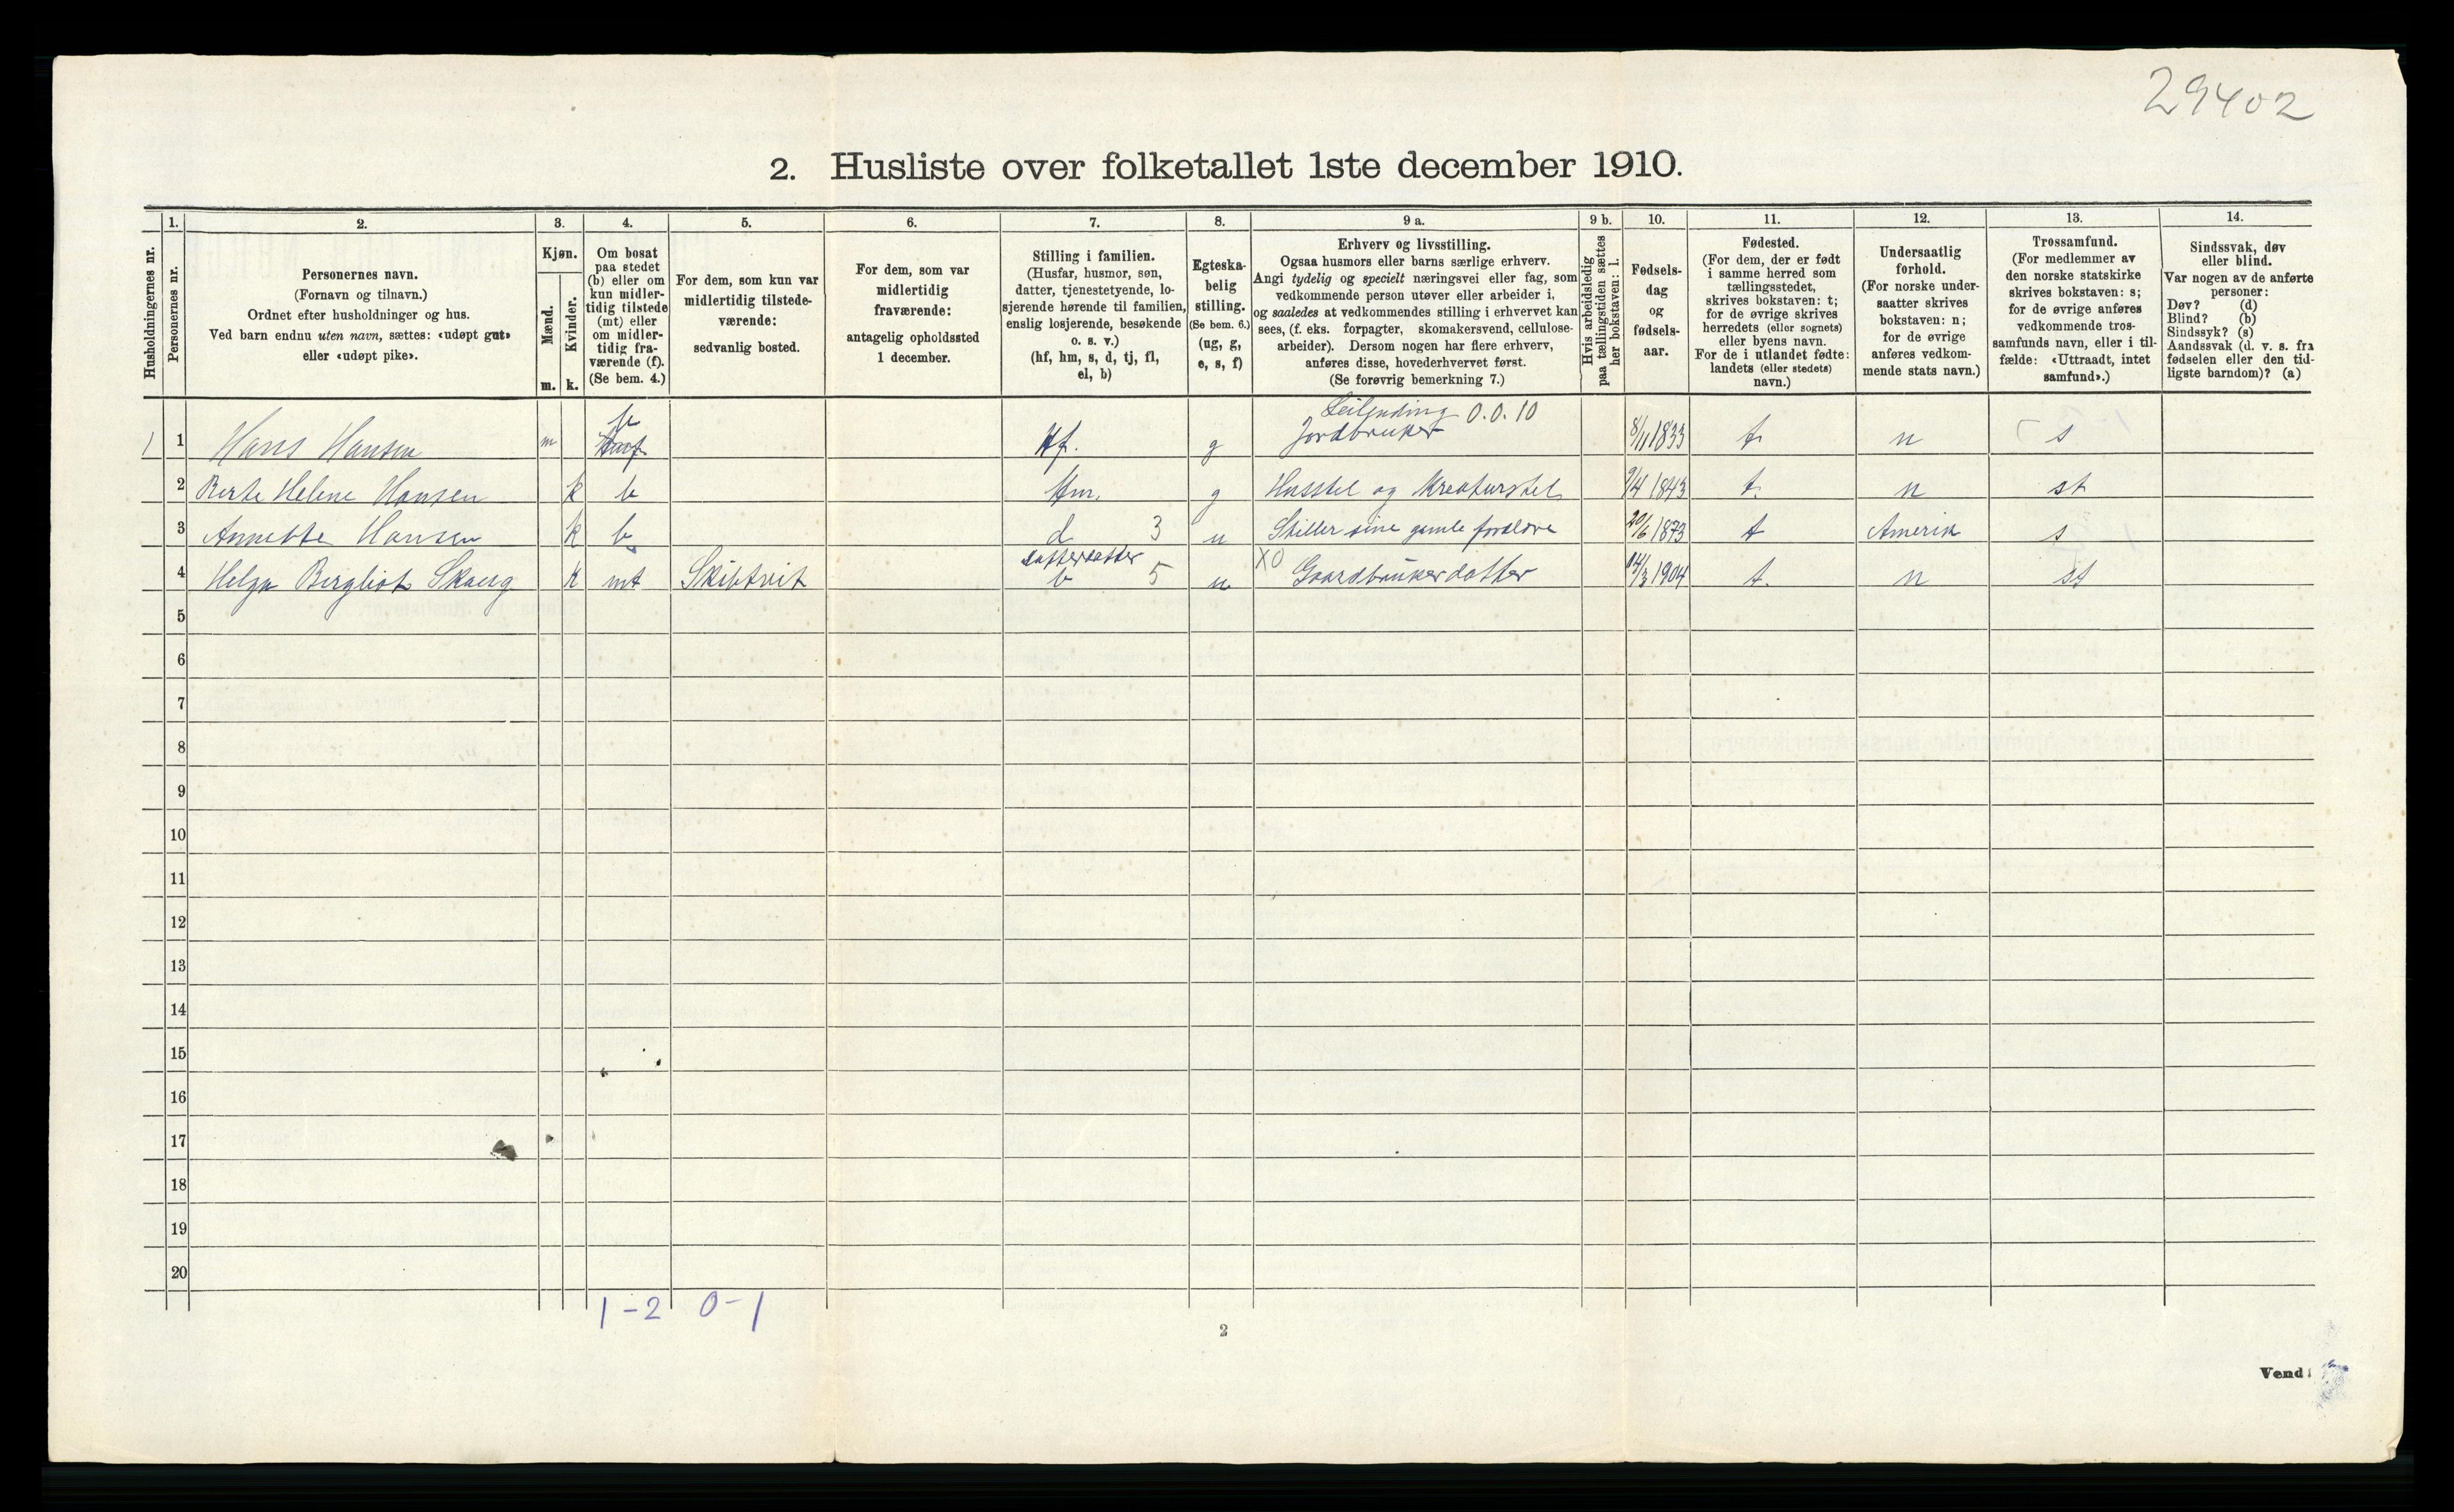 29402
2. Husliste over folketallet 1ste december 1910.
Husholdningernes nr.
1.
Personernes nr.
2.
Personernes navn.
(Fornavn og tilnavn.)
Ordnet efter husholdninger og hus.
Ved barn endnu uten navn, sættes: «udøpt gut»
eller «udøpt pike».
3.
Kjøn.
Mænd.
Kvinder.
m. k.
4.
Om bosat
paa stedet
(b) eller om
kun midler-
tidig tilstede
(mt) eller
om midler-
tidig fra-
værende (f).
(Se bem. 4.)
5.
For dem, som kun var
midlertidig tilstede-
værende:
sedvanlig bosted.
6.
For dem, som var
midlertidig
fraværende:
antagelig opholdssted
1 december.
7.
Stilling i familien.
(Husfar, husmor, søn,
datter, tjenestetyende, lo-
sjerende hørende til familien,
enslig losjerende, besøkende
o. s. v.)
(hf, hm, s, d, tj, fl,
el, b)
8.
Egteska-
belig
stilling.
(Se bem. 6.)
(ug, g,
e, s, f)
9 a.
Erhverv og livsstilling.
Ogsaa husmors eller barns særlige erhverv.
Angi tydelig og specielt næringsvei eller fag, som
vedkommende person utøver eller arbeider i,
og saaledes at vedkommendes stilling i erhvervet kan
sees, (f. eks. forpagter, skomakersvend, cellulose-
arbeider). Dersom nogen har flere erhverv,
anføres disse, hovederhvervet først.
(Se forøvrig bemerkning 7.)
9 b.
Hvis arbeidsledig
paa tællingstiden sættes
her bokstaven: l.
10.
Fødsels-
dag
og
fødsels-
aar.
11.
Fødested.
(For dem, der er født
i samme herred som
tællingsstedet,
skrives bokstaven: t;
for de øvrige skrives
herredets (eller sognets)
eller byens navn.
For de i utlandet fødte:
landets (eller stedets)
navn.)
12.
Undersaatlig
forhold.
(For norske under-
saatter skrives
bokstaven: n;
for de øvrige
anføres vedkom-
mende stats navn.)
13.
Trossamfund.
(For medlemmer av
den norske statskirke
skrives bokstaven: s;
for de øvrige anføres
vedkommende tros-
samfunds navn, eller i til-
fælde: «Uttraadt, intet
samfund».)
14.
Sindssvak, døv
eller blind.
Var nogen av de anførte
personer:
Døv? (d)
Blind? (b)
Sindssyk? (s)
Aandssvak (d. v. s. fra
fødselen eller den tid-
ligste barndom)? (a)
b Leilending 0.0.10
1 1 Hans Hansen m Hf. g Jordbruker 8/11 1833 t. n s
2 Berte Helene Hansen k b Hm. g Husstel og Kreaturstel 9/4 1843 t. n st
3 Annette Hansen k b d 3 u Steller sine gamle forældre 20/6 1873 t Amerik s
datterdatter
4 Helga Bergliot Skaug k mt Skibtvit b 5 u X0 Gaardbrukerdatter 14/3 1904 t. n st
5
6
7
8
9
10
11
12
13
14
15
16
17
18
19
20
1-2 0-1
2
Vend!